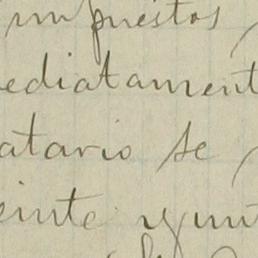 impuestos
ediatament
atario se
einte y un